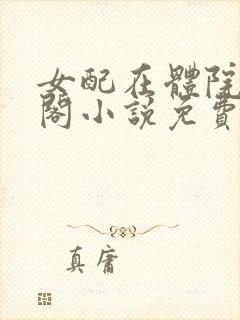 女配在體院
閣小說免費
真庸